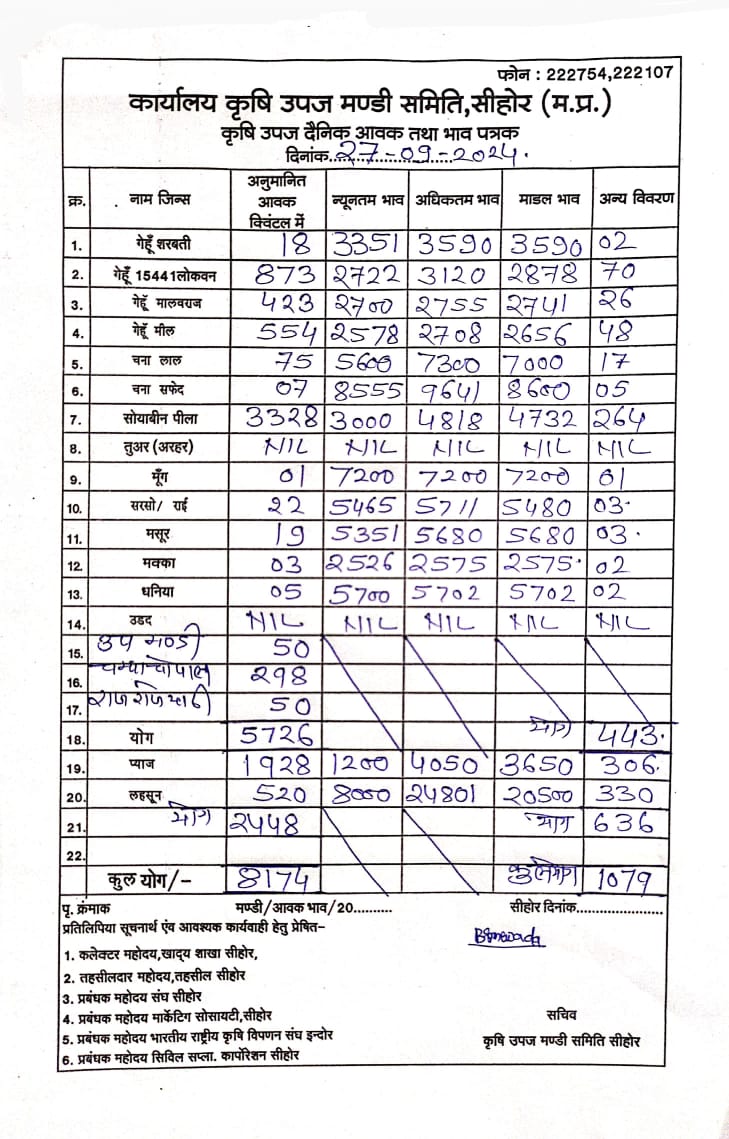 फोन : 222754,222107
कार्यालय कृषि उपज मण्डी समिति,सीहोर (म.प्र.)
कृषि उपज दैनिक आवक तथा भाव पत्रक
दिनांक..27-09-2024.
क्र. नाम जिन्स अनुमानित आवक क्विंटल में न्यूनतम भाव अधिकतम भाव माडल भाव अन्य विवरण
1. गेहूँ शरबती 18 3351 3590 3590 02
2. गेहूँ 15441लोकवन 873 2722 3120 2878 70
3. गेहूॅ मालवराज 423 2700 2755 2741 26
4. गेहूॅ मील 554 2578 2708 2656 48
5. चना लाल 75 5600 7300 7000 17
6. चना सफेद 07 8555 9641 8600 05
7. सोयाबीन पीला 3328 3000 4818 4732 264
8. तुअर (अरहर) NIL NIL NIL NIL NIL
9. मूँग 01 7200 7200 7200 01
10. सरसो/ राई 22 5465 5711 5480 03.
11. मसूर 19 5351 5680 5680 03.
12. मक्का 03 2526 2575 2575. 02
13. धनिया 05 5700 5702 5702 02
14. उडद NIL NIL NIL NIL NIL
15. उप मण्डी 50
16. 298
17. 50
18. योग 5726 योग 443.
19. प्याज 1928 1200 4050 3650 306.
20. लहसून 520 8000 24801 20500 330
21. योग 2448 योग 636
22.
कुल योग/- 8174 कुल योग 1079
पृ. क्रंमाक मण्डी/आवक भाव/20.......... सीहोर दिनांक......................
प्रतिलिपिया सूचनार्थ एंव आवश्यक कार्यवाही हेतु प्रेषित–
1. कलेक्टर महोदय,खाद्य शाखा सीहोर,
2. तहसीलदार महोदय,तहसील सीहोर
3. प्रबंधक महोदय संघ सीहोर
4. प्रबंधक महोदय मार्केटिग सोसायटी,सीहोर सचिव
5. प्रबंधक महोदय भारतीय राष्ट्रीय कृषि विपणन संघ इन्दोर कृषि उपज मण्डी समिति सीहोर
6. प्रबंधक महोदय सिविल सप्ला. कार्पोरेशन सीहोर